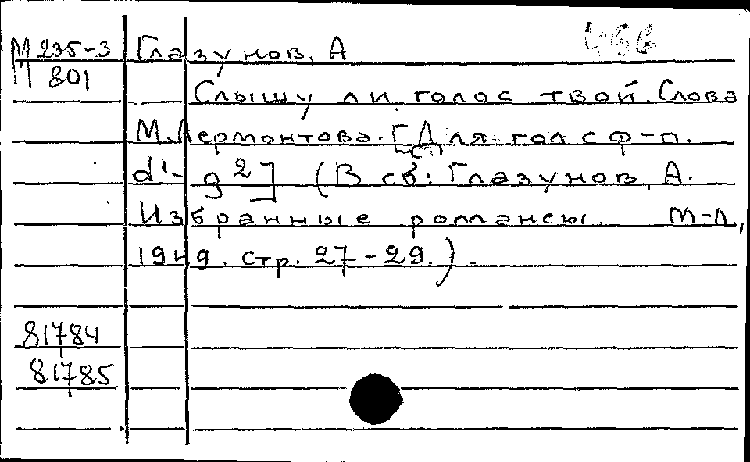 М 235-3 Глазунов, А
П 801 Слышу ли голос твой. Слова
М. Лермонтова. [Для гол с ф-п.
d¹- g²] (В сб: Глазунов, А.
Избранные романсы. М-Л,
1949. стр. 27-29.).
81784
81785